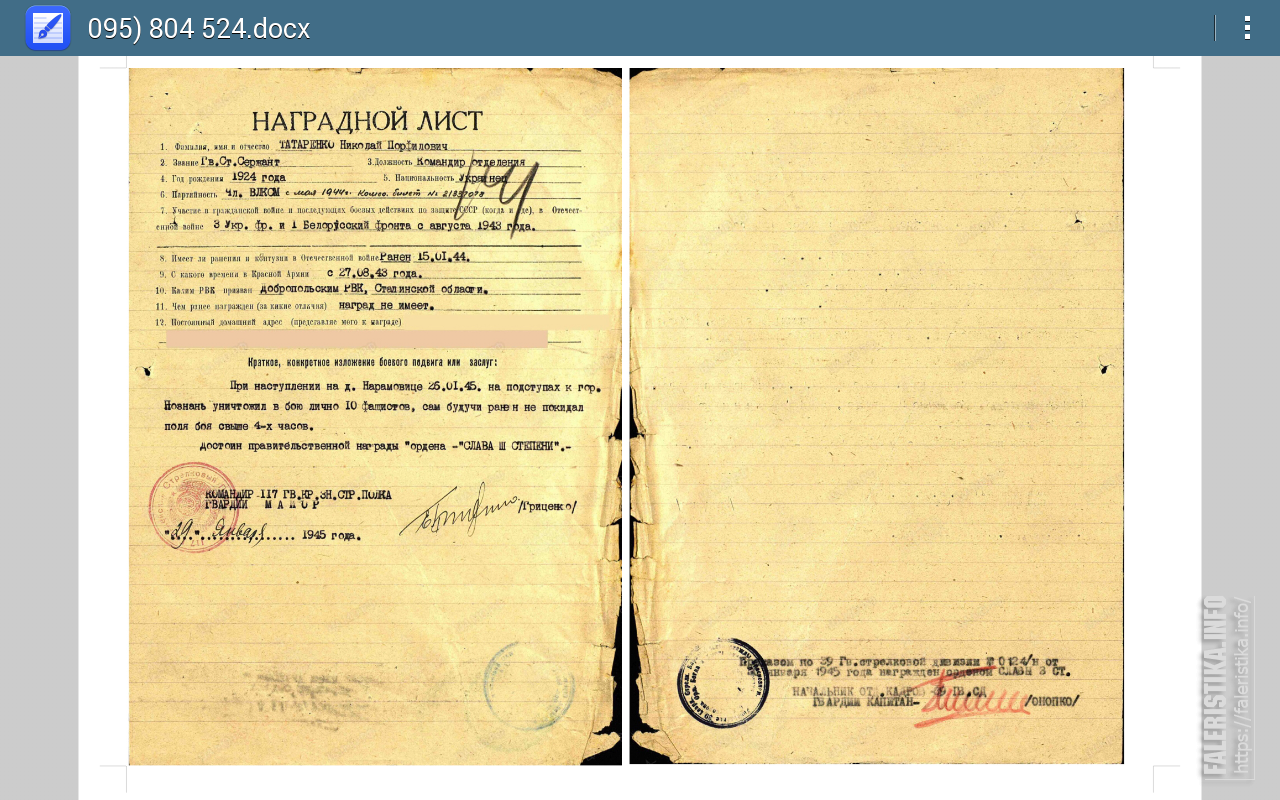 095) 804 524.docx
НАГРАДНОЙ ЛИСТ
1. Фамилия, имя и отчество ТАТАРЕНКО Николай Порфилович
2. Звание Гв.Ст.Сержант 3.Должность Командир отделения
4. Год рождения 1924 года 5. Национальность Украинец
6. Партийность Чл. ВЛКСМ с мая 1944г. Комсо. билет №
7. Участие в гражданской войне и последующих боевых действиях по защите СССР (когда и где), в Отечест-
енной войне 3 Укр. фр. и 1 Белорусский фронта с августа 1943 года.
8. Имеет ли ранения и контузии в Отечественной войне Ранен 15.01.44.
9. С какого времени в Красной Армии с 27.08.43 года.
10. Каким РВК призван Добропольским РВК, Сталинской области.
11. Чем ранее награжден (за какие отличия) наград не имеет.
12. Постоянный домашний адрес (представляе мого к награде)
Краткое, конкретное изложение боевого подвига или заслуг:
При наступлении на д. Нарамовице 26.01.45. на подступах к гор.
Познань уничтожил в бою лично 10 фашистов, сам будучи ранен не покидал
поля боя свыше 4-х часов.
Достоин правительственной награды "ордена -"СЛАВА Ш СТЕПЕНИ".-
КОМАНДИР 117 ГВ.КР.ЗН.СТР.ПОЛКА
ГВАРДИИ МАЙОР /Гриценко/
"29" Январь 1945 года.
Приказом по 39 Гв.стрелковой дивизии № 0124/н от
января 1945 года награжден орденом СЛАВЫ 3 СТ.
НАЧАЛЬНИК ОТД.КАДРОВ 39 ГВ.СД
ГВАРДИИ КАПИТАН- /ОНОПКО/
FALERISTIKA.INFO
https://faleristika.info/